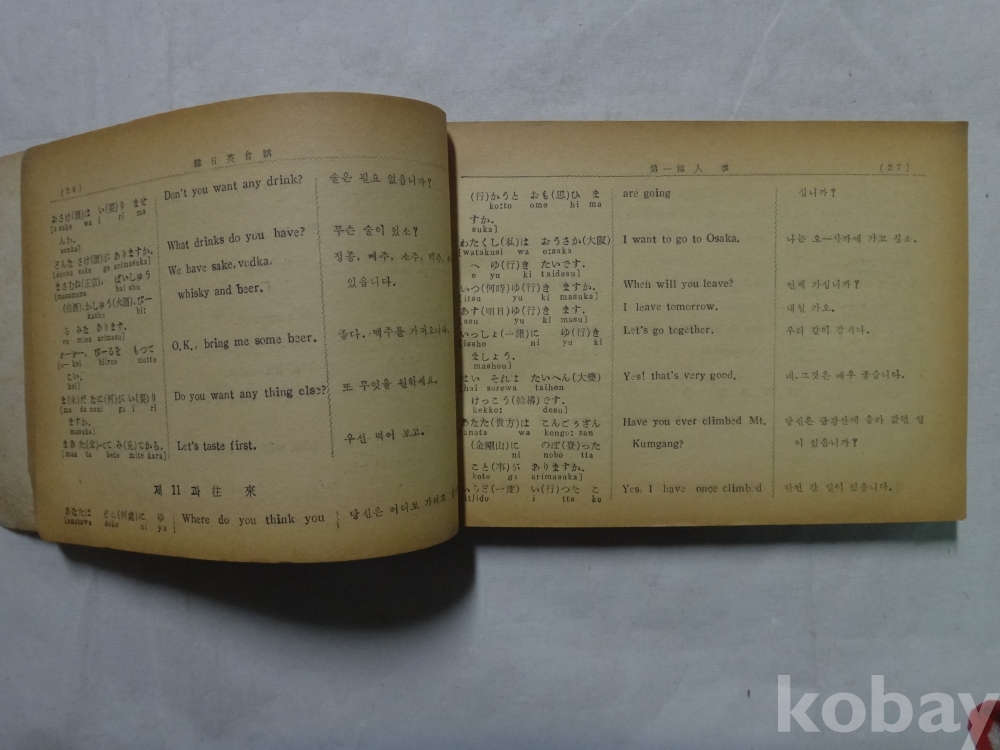 (26)
韓日英會話
おさけ(酒)は い(要)り ませ
Don't you want any drink?
술은 필요 없읍니까?
[o sake wa i ri ma
んか。
senka]
どんな さけ(酒)が ありますか。
What drinks do you have?
무슨 술이 있소?
[donna sake ga arimasuka]
まさむね(正宗), ばいしゅう
We have sake, vodka.
정종, 빼주, 소주, 맥주,
[masamune bai shu
whisky and beer.
있읍니다.
ら みた あります。
O.K., bring me some beer.
좋다. 맥주를 가져오
びーるを もつて
こい。
koi]
ま(未)だ なに(何)が い(要)り
Do you want any thing else?
또 무엇을 원하세요.
[ma da nani ga i ri
ますか。
masuka]
まあ た(食)べて み(見)てから。
Let's taste first.
우선 먹어 보고.
[maa ta bete mite kara]
제 11 과 往 來
あなたは どこ(何處)に ゆ
Where do you think you
당신은 어디로 가려고
[anatawa doko ni yu
第一篇 人 事
(27)
(行)かうと おも(思)ひ ま
are going
십니까?
ko:to omo hi ma
すか。
suka]
わたくし(私)は おうさか(大阪)
I want to go to Osaka.
나는 오—사까에 가고 싶소.
[watakusi wa o:saka
へ ゆ(行)き たいです。
e yu ki taidesu]
いつ(何時)ゆ(行)き ますか。
When will you leave?
언제 가십니까?
[itsu yu ki masuka]
あす(明日)ゆ(行)き ます。
I leave tomorrow.
내일 가오.
[asu yu ki masu]
いっしょ(一諸)に ゆ(行)き
Let's go together.
우리 같이 갑시다.
[issho ni yu ki
ましょう。
mashou]
はい それは たいへん(大變)
Yes! that's very good.
네, 그것은 매우 좋습니다.
[hai sorewa taihen
けっこう(結構)です。
kekko: desu]
あなた(貴方)は こんごうざん
Have you ever climbed Mt.
당신은 금강산에 올라 갔던 일
[anata wa kongo: zan
(金剛山)に のぼ(登)った
Kumgang?
이 있습니까?
ni nobo tta
こと(事)が ありますか。
koto ga arimasuka]
いちど(一度) い(行)つた こ
Yes, I have once climbed
한번 간 일이 있읍니다.
itido i tta ko
kobay